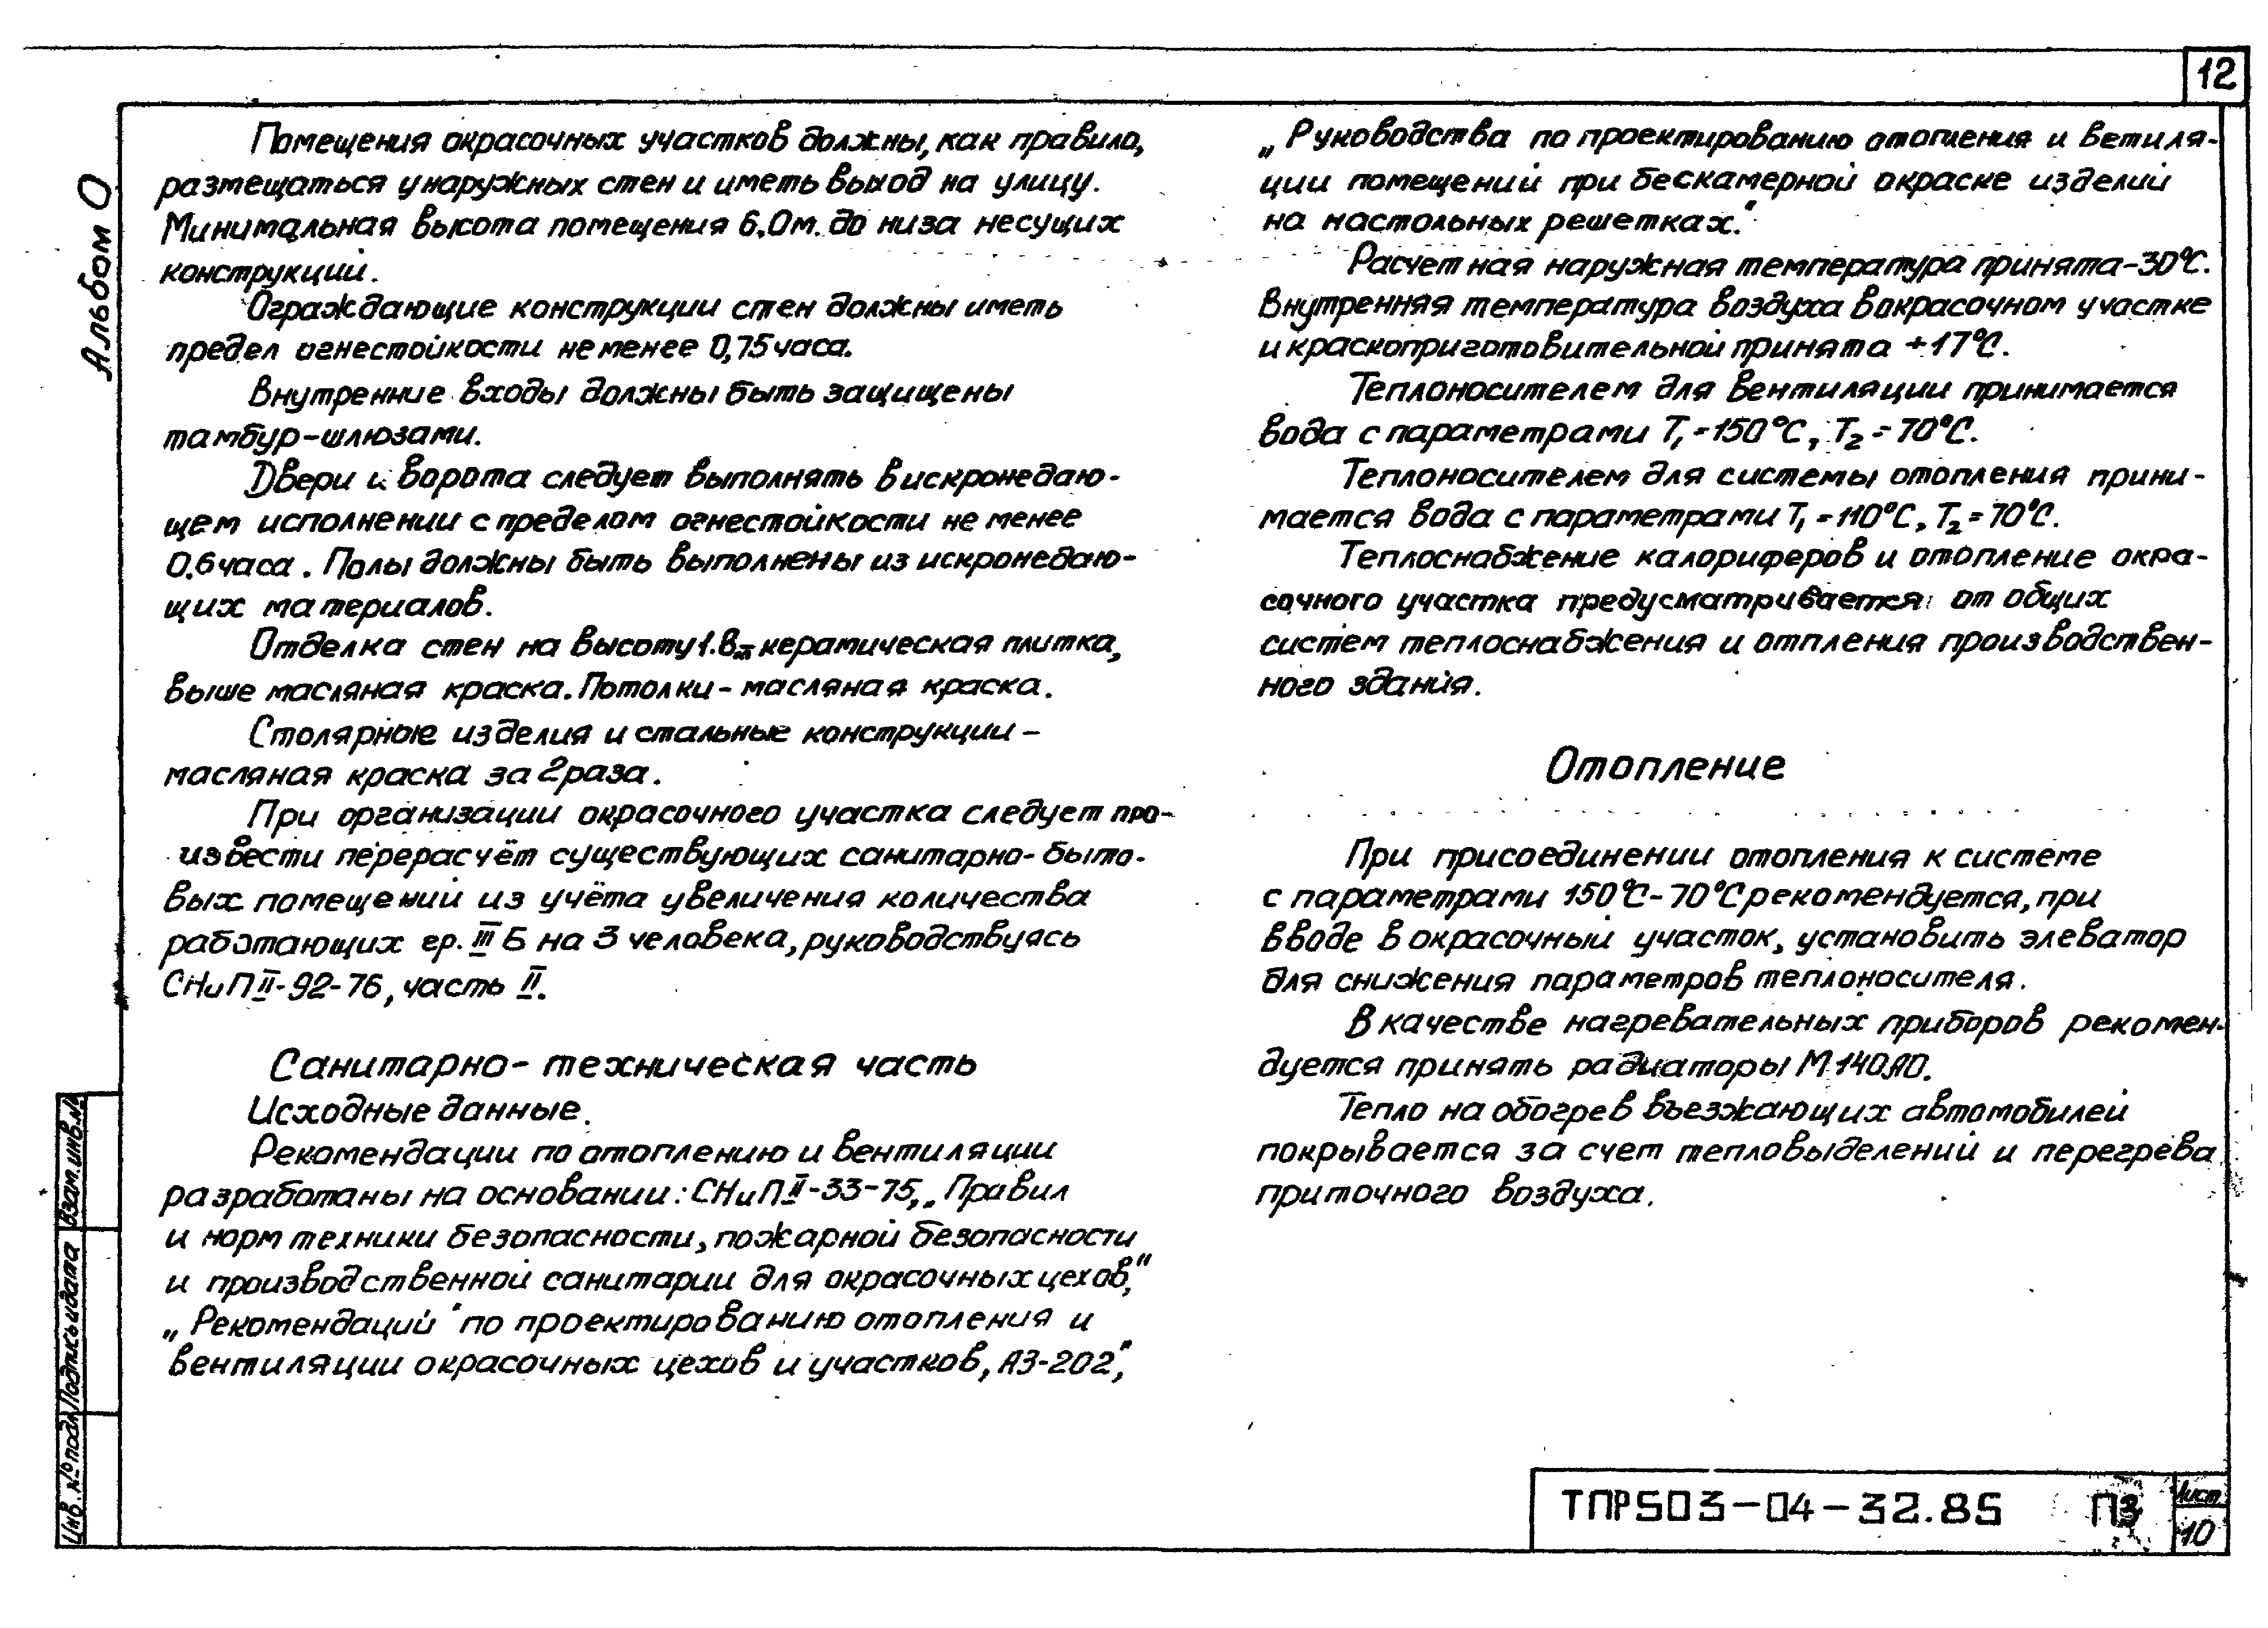 12
Альбом 0
Помещения окрасочных участков должны, как правило,
размещаться у наружных стен и иметь выход на улицу.
Минимальная высота помещения 6.0м. до низа несущих
конструкции.
Ограждающие конструкции стен должны иметь
предел огнестойкости не менее 0,75 часа.
Внутренние входы должны быть защищены
тамбур-шлюзами.
Двери и ворота следует выполнять в искронедаю-
щем исполнении с пределом огнестойкости не менее
0.6 часа. Полы должны быть выполнены из искронедаю-
щих материалов.
Отделка стен на высоту 1.8м керамическая плитка,
выше масляная краска. Потолки - масляная краска.
Столярные изделия и стальные конструкции -
масляная краска за 2 раза.
При организации окрасочного участка следует про-
извести перерасчёт существующих санитарно-быто-
вых помещений из учёта увеличения количества
работающих гр. III Б на 3 человека, руководствуясь
СНиП II-92-76, часть II.
Санитарно-техническая часть
Исходные данные.
Рекомендации по отоплению и вентиляции
разработаны на основании: СНиП II-33-75, „Правил
и норм техники безопасности, пожарной безопасности
и производственной санитарии для окрасочных цехов,"
„Рекомендаций" по проектированию отопления и
вентиляции окрасочных цехов и участков, АЗ-202",
„Руководства по проектированию отопления и ветиля-
ции помещений при бескамерной окраске изделий
на настольных решетках."
Расчетная наружная температура принята -30°С.
Внутренняя температура воздуха в окрасочном участке
и краскоприготовительной принята +17°С.
Теплоносителем для вентиляции принимается
вода с параметрами Т₁=150°С, Т₂=70°С.
Теплоносителем для системы отопления прини-
мается вода с параметрами Т₁=110°С, Т₂=70°С.
Теплоснабжение калориферов и отопление окра-
сочного участка предусматривается от общих
систем теплоснабжения и отпления производствен-
ного здания.
Отопление
При присоединении отопления к системе
с параметрами 150°С-70°С рекомендуется, при
вводе в окрасочный участок, установить элеватор
для снижения параметров теплоносителя.
В качестве нагревательных приборов рекомен-
дуется принять радиаторы М 140АО.
Тепло на обогрев въезжающих автомобилей
покрывается за счет тепловыделений и перегрева
приточного воздуха.
Инв. № подл. Подпись и дата Взам. инв. №
ТПР503-04-32.85 ПЗ
Лист
10